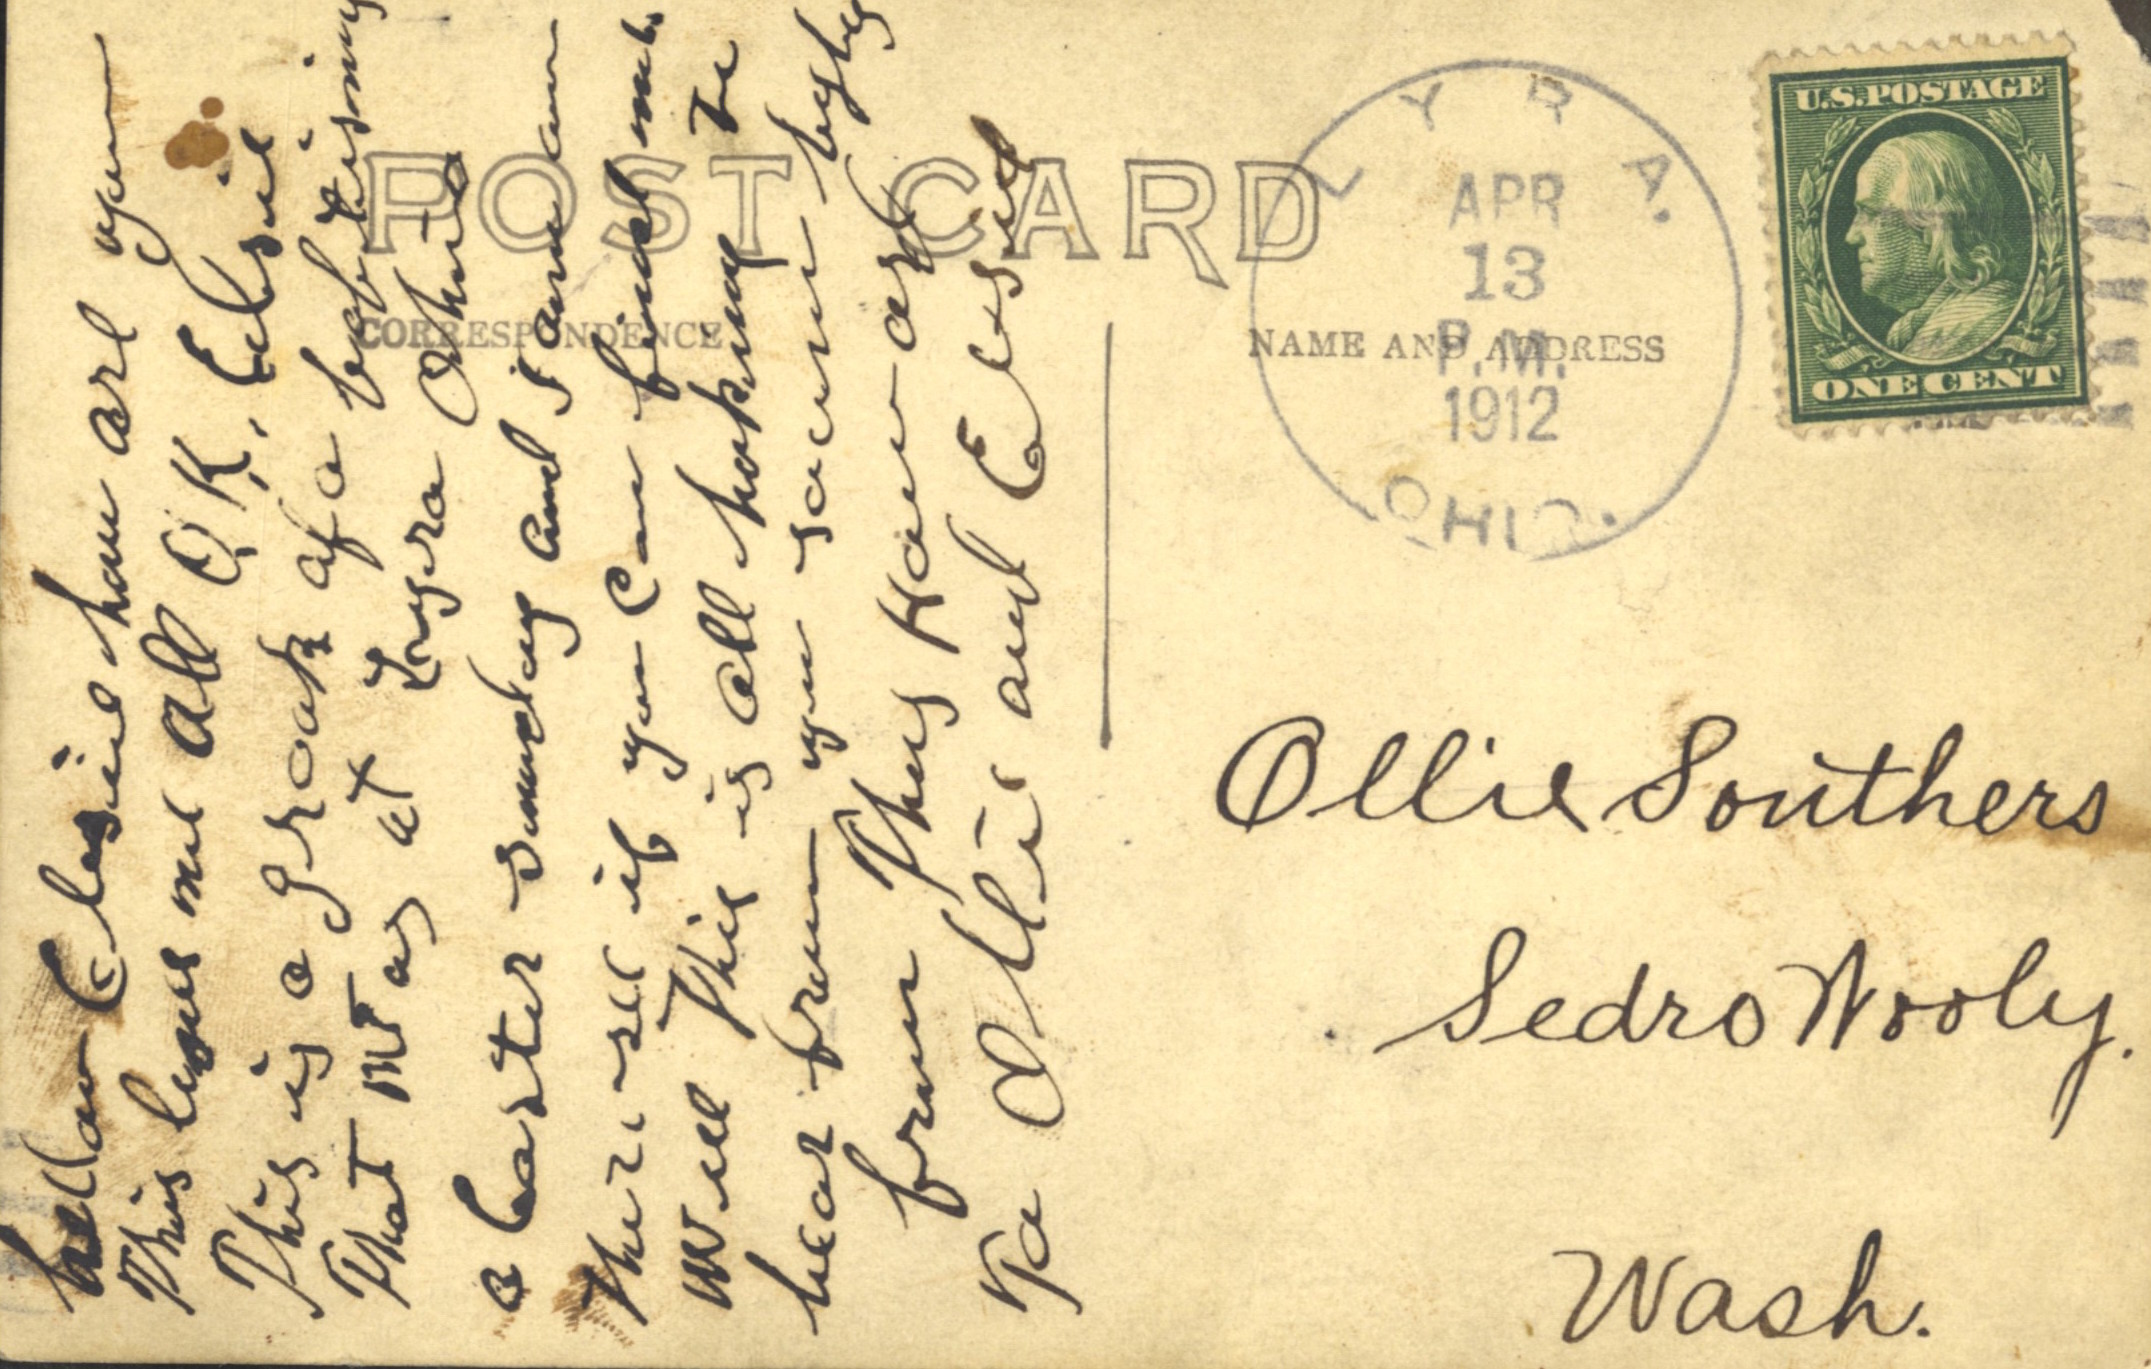 POST CARD
CORRESPONDENCE
NAME AND ADDRESS
LYRA.
APR
13
P.M.
1912
OHIO.
U.S. POSTAGE
ONE CENT
hellow Elesie how are you
This leaves me all O.K., Elesie
This is a group of a babtising
That was at Lyra Ohio
a Easter sunday and I am in
there see if you can find me.
Well This is all hoping to
hear from you soon by by
from Thos Howard
To Ollie and Elesie
Ollie Southers
Sedro Wooly.
Wash.